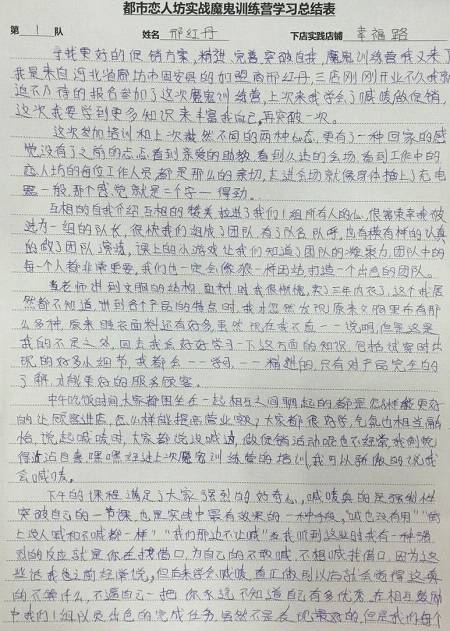 都市恋人坊实战魔鬼训练营学习总结表
第 1 队 姓名 邢红丹 下店实践店铺 幸福路
寻找更好的促销方案,精进,完善,突破自我,魔鬼训练营我又来了
我是来自河北省廊坊市固安县的加盟商邢红丹,三店刚刚开业不久我就
迫不及待的报名参加了这次魔鬼训练营,上次来我学会了喊麦做促销,
这次我要学到更多知识来丰富我自己,再突破一次。
这次参加培训和上次截然不同的两种心态,更有了一种回家的感
觉没有了之前的忐忑看到亲爱的助教,看到久违的会场,看到工作中的
恋人坊的每位工作人员都是那么的亲切,走进会场就像身体插上了充电
器一般,那个感觉就是一个字—得劲。
互相的自我介绍互相的赞美拉近了我们1组所有人的心,很荣幸我被
选为一组的队长,很快我们组成了团队有了队名队呼,也有模有样的认真
的做了团队演练,课上的小游戏让我们知道了团队的凝聚力,团队中的
每一个人都非常重要,我们也一定会像狼一样团结打造一个出色的团队。
老师讲到文胸的结构,面料时我很惭愧,卖了三年内衣了,这个我居
然都不知道,讲到各个产品的特点时,我才忽然发现原来文胸里布有那
么多种,原来睡衣面料还有好多,虽然现在我不能一一说明,但是这是
我的不足之处,回去我会好好学习一下这方面的知识,包括试穿时出
现的好多小细节,我都会一一学习,一一精进的,只有对产品完全的
了解,才能更好的服务顾客。
中午吃饭时间大家都围坐在一起相互之间聊起的都是怎样能更好
的让顾客进店,怎么样能提高营业额,大家都很好学,气氛也相当融
怡,说起喊麦时,大家都说没喊过,做促销活动呢也不好意
会喊麦。
下午的课程满足了大家强烈的好奇心,喊麦真的是强制性
突破自己的一节课,也是实战中最有效果的一种手段,"喊也没有用"
上没人喊和不喊都一样""我们那边不让喊"当我听到这些时我有一种强
烈的反应就是你在找借口,为自己的不敢喊,不想喊找借口,因为这
些话我也之前经常说,但后来学会喊麦,真正做到以后就会觉得这真
的不算什么,不逼自己一把,你永远不知道自己有多优秀,在相互鼓励
中我们1组队员出色的完成任务,虽然不是表现最好的,但是我们每个